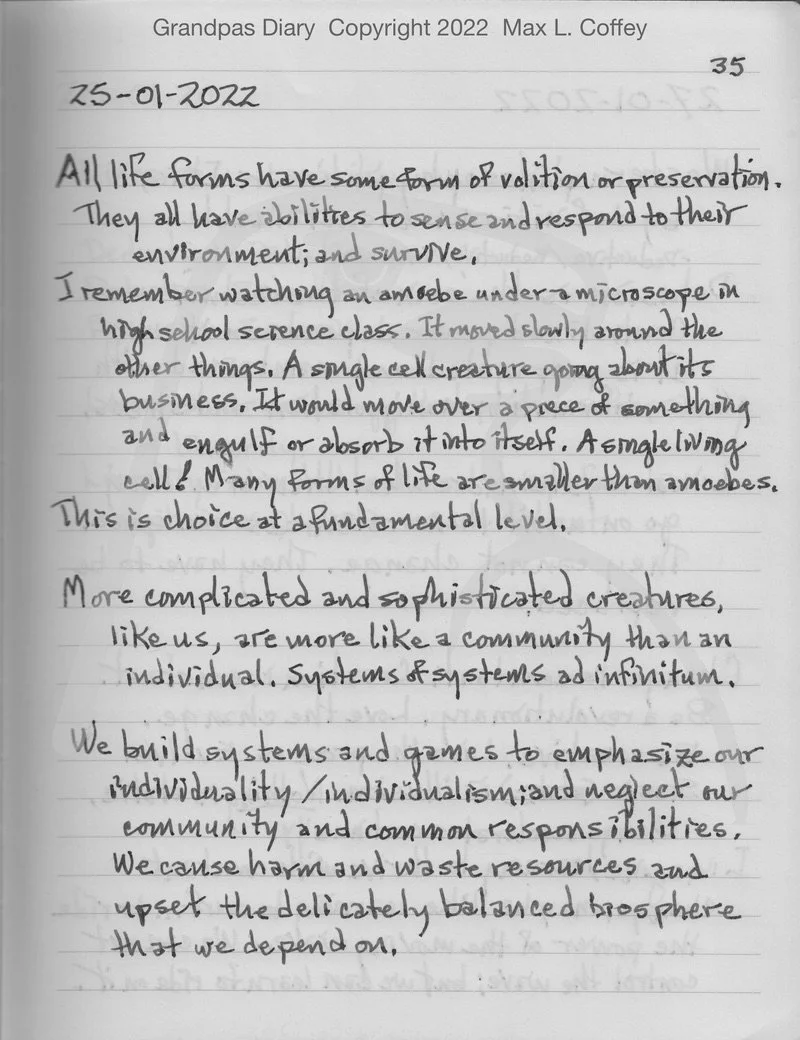 Grandpas Diary Copyright 2022 Max L. Coffey
35
25-01-2022
All life forms have some form of volition or preservation.
They all have abilities to sense and respond to their
environment; and survive.
I remember watching an amoebe under a microscope in
high school science class. It moved slowly around the
other things. A single cell creature going about its
business. It would move over a piece of something
and engulf or absorb it into itself. A single living
cell! Many forms of life are smaller than amoebes.
This is choice at a fundamental level.
More complicated and sophisticated creatures,
like us, are more like a community than an
individual. Systems of systems ad infinitum.
We build systems and games to emphasize our
individuality/individualism; and neglect our
community and common responsibilities.
We cause harm and waste resources and
upset the delicately balanced biosphere
that we depend on.